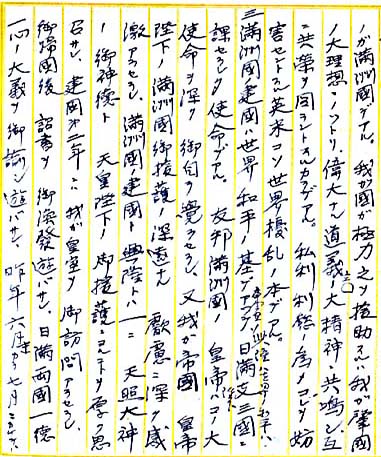 ノガ満洲國デアル。我ガ國ガ極力之ヲ援助スルハ我ガ肇國
ノ大理想ニノットリ、偉大ナル道義ノ大精神ニ共鳴シ互
ニ共榮ヲ図ラントスルカラデアル。私利利慾ノ為メコレヲ妨
害セントスル英米コソ世界擾乱ノ本デアル。
満洲國ノ建國ハ世界和平ノ基デアツテ日満支三國ニ
課セラレタ使命デアル。友邦満洲國ノ皇帝ハコノ大
使命ヲ深ク御自覺セラレ、又我ガ帝國
陛下ノ満洲國御援護ノ深キ叡慮ニ深ク感
激アラセラレ満洲國ノ建國ト興隆ハ一ニ天照大神
ノ御神徳ト天皇陛下ノ御援護ニヨルト厚ク思
召サレ、建國第三年ニハ我ガ皇室ヲ御訪問アラセラレ、
御帰國後詔書ヲ御渙發遊バサレ、日満両國一徳
一心ノ大義ヲ御諭シ遊バサレ、昨年六月カラ七月ニ